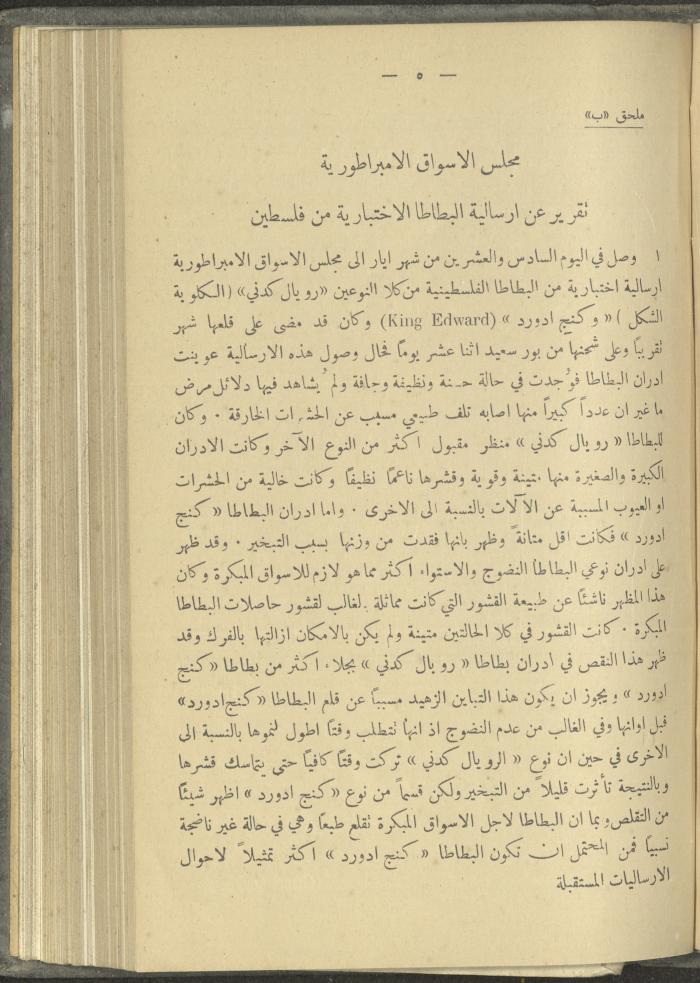 — ٥ —
ملحق «ب»
مجلس الاسواق الامبراطورية
تقرير عن ارسالية البطاطا الاختبارية من فلسطين
١ وصل في اليوم السادس والعشرين من شهر ايار الى مجلس الاسواق الامبراطورية
ارسالية اختبارية من البطاطا الفلسطينية من كلا النوعين «رويال كدني» (الكلوية
الشكل) «وكنج ادورد» (King Edward) وكان قد مضى على قلعها شهر
تقريبًا وعلى شحنها من بور سعيد اثنا عشر يومًا فحال وصول هذه الارسالية عوينت
ادران البطاطا فوُجدت في حالة حسنة ونظيفة وجافة ولم يُشاهد فيها دلائل مرض
ما غير ان عدداً كبيراً منها اصابه تلف طبيعي مسبب عن الحشرات الخارقة . وكان
للبطاطا «رويال كدني» منظر مقبول اكثر من النوع الآخر وكانت الادران
الكبيرة والصغيرة منها متينة وقوية وقشرها ناعمًا نظيفًا وكانت خالية من الحشرات
او العيوب المسببة عن الآلات بالنسبة الى الاخرى . واما ادران البطاطا «كنج
ادورد» فكانت اقل متانةً وظهر بانها فقدت من وزنها بسبب التبخير . وقد ظهر
على ادران نوعي البطاطا النضوج والاستواء اكثر مما هو لازم للاسواق المبكرة وكان
هذا المظهر ناشئًا عن طبيعة القشور التي كانت مماثلة بالغالب لقشور حاصلات البطاطا
المبكرة . كانت القشور في كلا الحالتين متينة ولم يكن بالامكان ازالتها بالفرك وقد
ظهر هذا النقص في ادران بطاطا «رويال كدني» بجلاء اكثر من بطاطا «كنج
ادورد» ويجوز ان يكون هذا التباين الزهيد مسببًا عن قلع البطاطا «كنج ادورد»
قبل اوانها وفي الغالب من عدم النضوج اذ انها تتطلب وقتًا اطول لنموها بالنسبة الى
الاخرى في حين ان نوع «الرويال كدني» تركت وقتًا كافيًا حتى يتماسك قشرها
وبالنتيجة تأثرت قليلاً من التبخير ولكن قسماً من نوع «كنج ادورد» اظهر شيئًا
من التقلص وبما ان البطاطا لاجل الاسواق المبكرة تقلع طبعًا وهي في حالة غير ناضجة
نسبيًا فمن المحتمل ان تكون البطاطا «كنج ادورد» اكثر تمثيلاً لاحوال
الارساليات المستقبلة